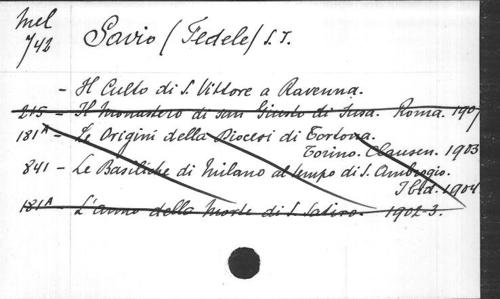 Mel
742
Savio (Fedele) S. J.
- Il Culto di S. Vittore a Ravenna.
215 - Il Monastero di San Giusto di Susa. Roma. 1907
181A - Le Origini della Diocesi di Tortona.
Torino. Clausen. 1903
841 - Le Basiliche di Milano al tempo di S. Ambrogio.
Ibid. 1904
181A - L'anno della Morte di S. Satiro. 1902-3.